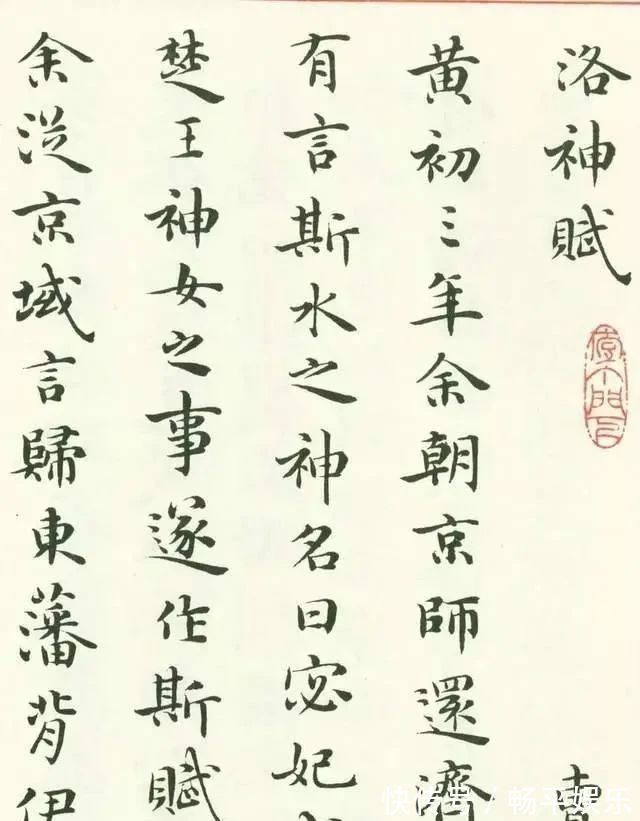 洛神賦
黄初三年余朝京師還濟
有言斯水之神名曰宓妃
楚王神女之事遂作斯賦
余從京域言歸東藩背伊
快传号/畅平娱乐